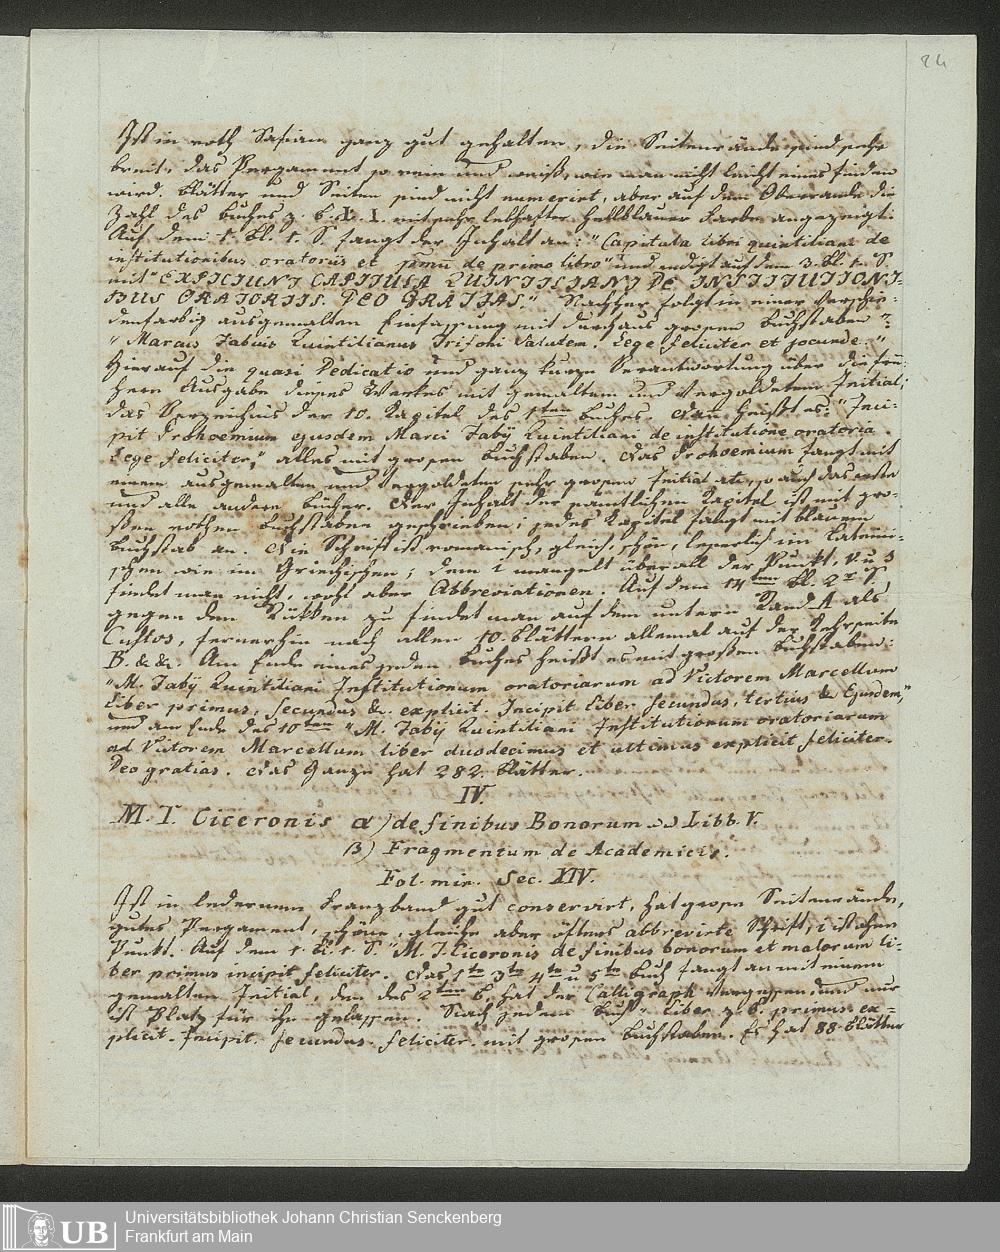 24
Ist in roth Safian ganz gut gehalten, die Seitenränder sind sehr
breit, das Pergament so rein und weiß, wie man nicht leicht eines finden
wird. Blätter und Seiten sind nicht numerirt, aber auf dem Oberrande die
Zahl des Buches z. B. L. I. mit sehr lebhafter hellblauer Farbe angezeigt.
Auf dem 1. Bl. 1. S. fangt der Inhalt an: "Capitula libri quintiliani de
institutionibus oratoriis et primū de primo libro" und endigt auf dem 3. Bl. 1. S
mit "EXPLICIUNT CAPITULA QUINTILIANI DE INSTITUTIONI-
BUS ORATORIIS. DEO GRATIAS." Nachher folgt in einer verschie-
denfarbig ausgemalten Einfassung mit durchaus grosen Buchstaben
"Marcus Fabius Quintilianus Trifoni Salutem. Lege feliciter et jocunde."
Hierauf die quasi Dedicatio und ganz kurze Verantwortung über die frü-
here Ausgabe dieses Werkes mit gemaltem und vergoldetem Initial;
das Verzeichnis der 10. Kapitel des 1ten Buches. Dan heißt es: "Inci-
pit Prohoemium ejusdem Marci Fabij Quintiliani de institutione oratoria.
Lege feliciter," alles mit grosen Buchstaben. Das Prohoemium fangt mit
einem ausgemalten und vergoldeten sehr grosen Initial an, so auch das erste
und alle andern Bücher. Der Inhalt der sämtlichen Kapitel ist mit gro-
ßen rothen Buchstaben geschrieben; jedes Kapitel fangt mit blauem
Buchstab an. Die Schrift ist romanisch, gleich, schön, leserlich im Lateini-
schen wie im Griechischen; dem i mangelt überall der Punkt, v. u. s
findet man nicht, wohl aber Abbreviationen. Auf dem 14ten Bl. 2r S.
gegen dem Rükken zu findet man auf dem untern Rand A als
Custos, fernerhin nach allen 10. Blättern allemal auf der Kehrseite
B. &. &. Am Ende eines jeden Buches heißt es mit großen Buchstaben:
"M. Fabij Quintiliani Institutionum oratoriarum ad Victorem Marcellum
Liber primus, secundus &. explicit. Incipit liber secundus, tertius &. Ejusdem,"
und am Ende des 10ten "M. Fabij Quintiliani Institutionum oratoriarum
ad Victorem Marcellum liber duodecimus et ultimus explicit feliciter.
Deo gratias. Das Ganze hat 282. Blätter.
IV.
M. T. Ciceronis α) de finibus Bonorum Libb. V.
β) Fragmentum de Academicis.
Fol. min. Sec. XIV.
Ist in ledernem Franzband gut conservirt, hat grose Seitenränder,
gutes Pergament, schöne, gleiche aber öfters abbrevirte Schrift, i ist ohne
Punkt. Auf dem 1. Bl. 1 S. "M. T. Ciceronis de finibus bonorum et malorum li-
ber primus incipit feliciter. Das 1te 3te 4te u 5te Buch fangt an mit einem
gemalten Initial, den des 2ten B. hat der Calligraph vergessen, und nur
ist Platz für ihn gelassen. Nach jedem Buch "Liber z. B. primus ex-
plicit. Incipit. secundus. feliciter. mit grosen Buchstaben. Es hat 88. Blätter
UB
Universitätsbibliothek Johann Christian Senckenberg
Frankfurt am Main